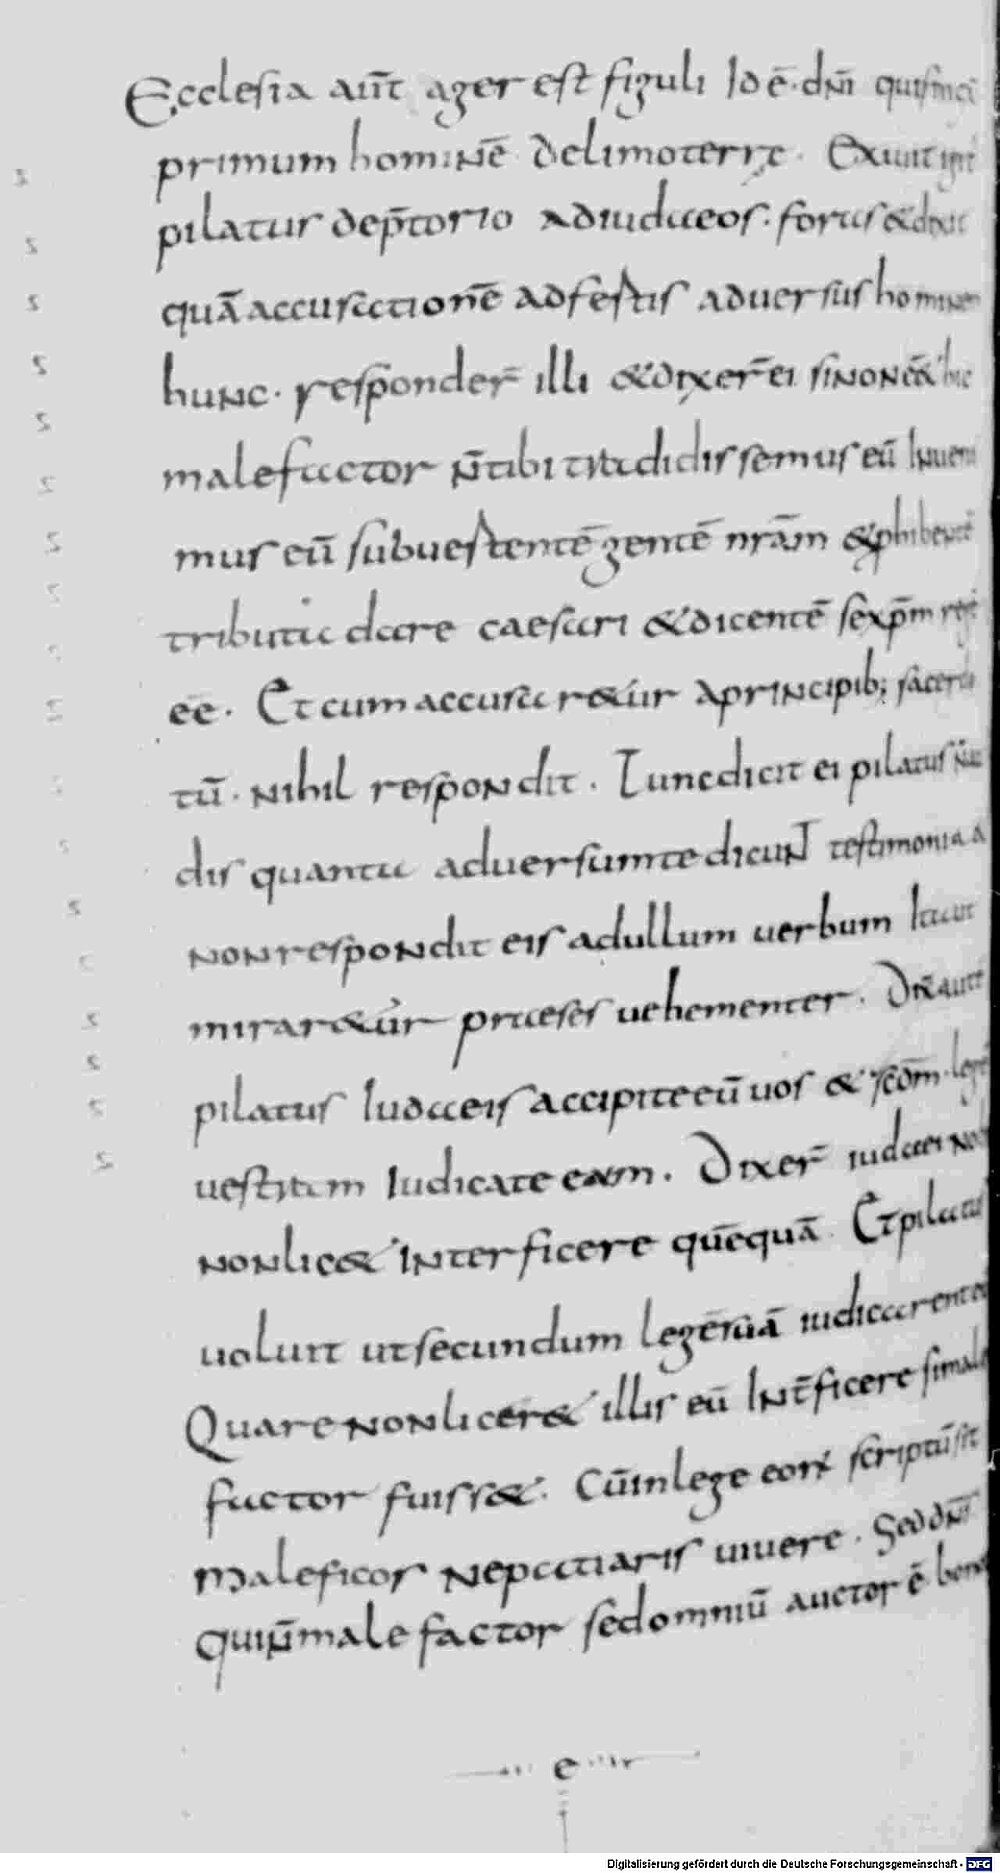 Ecclesia aūt ager est figuli Id ē · dn̄i qui finxit
primum hominē de limo terrę · Exiuit
pilatus de p̄torio ad iudaeos · foras & dixit
quā accusationē adfertis aduersus hominem
hunc · responder̄ illi & dixer̄ ei si non ēēt hic
malefactor n̄ tibi tradidissemus eū Inueni
mus eū subuertentē gentē nr̄ām & phibentē
tributa dare caesari & dicentē se xp̄m regē
ēē · Et cum accusar&ur a principib; sacerdo
tū · nihil respondit · Tunc dicit ei pilatus
dis quanta aduersum te dicunt testimonia
non respondit eis ad ullum uerbum Ita ut
mirar&ur praeses uehementer · 
pilatus Iudaeis accipite eū uos & scdm̄ · legē
uestram Iudicate eum · Dixer̄ iudaei
non lic& interficere quēquā · Et pilatus
uoluit ut secundum legē suā iudicarent
Quare non licer& illis eū Int̄ficere si male
factor fuiss& · Cū in lege eorū scriptū sit
maleficos ne patiaris uiuere · Sed dn̄s
qui n̄ malefactor sed omniū auctor ē
e